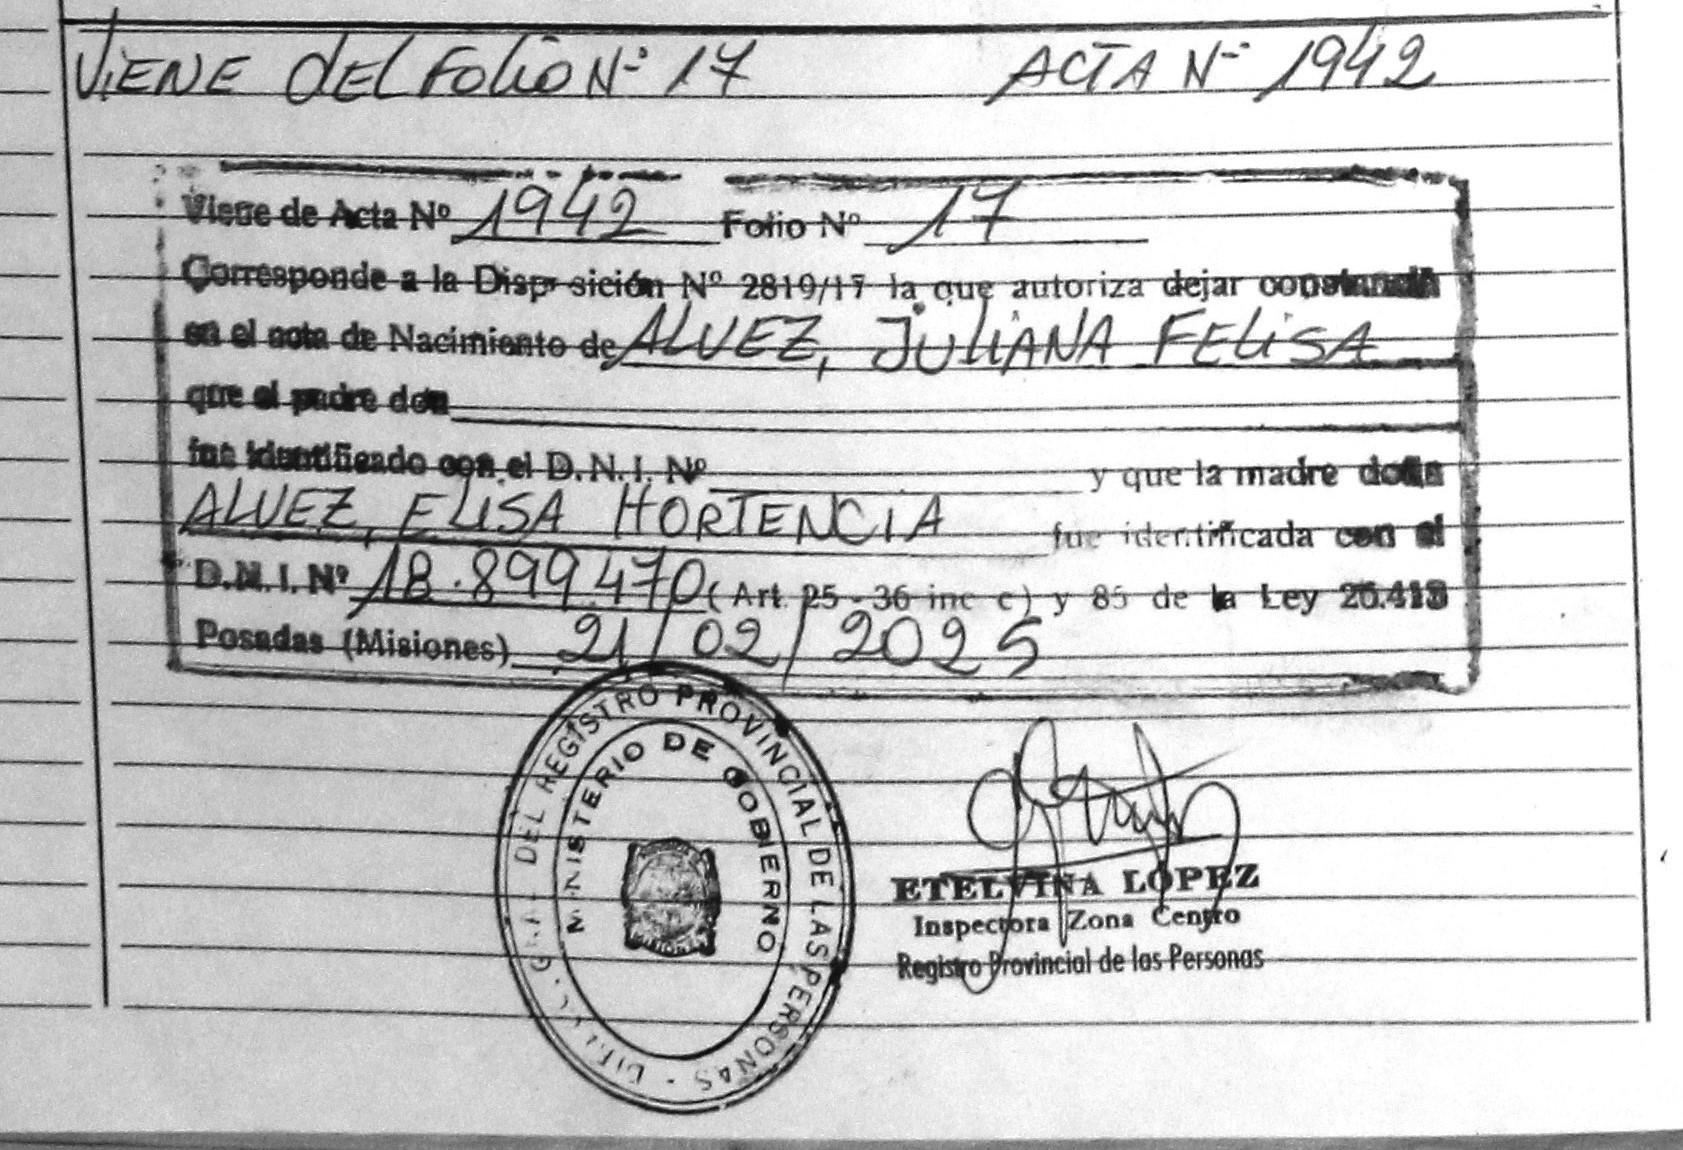 VIENE DEL FOLIO Nº 17 ACTA Nº 1942
Viene de Acta Nº 1942 Folio Nº 17
Corresponde a la Disposición Nº 2819/17 la que autoriza dejar constancia
en el acta de Nacimiento de ALVEZ, JULIANA FELISA
que el padre don
fue identificado con el D.N.I. Nº y que la madre doña
ALVEZ, ELISA HORTENCIA fue identificada con el
D.N.I. Nº 18.899.470 (Art. 25 - 36 inc c) y 85 de la Ley 26.413
Posadas (Misiones) 21/02/2025
GRAL DEL REGISTRO PROVINCIAL DE LAS PERSONAS
MINISTERIO DE GOBIERNO
ETELVINA LOPEZ
Inspectora Zona Centro
Registro Provincial de las Personas